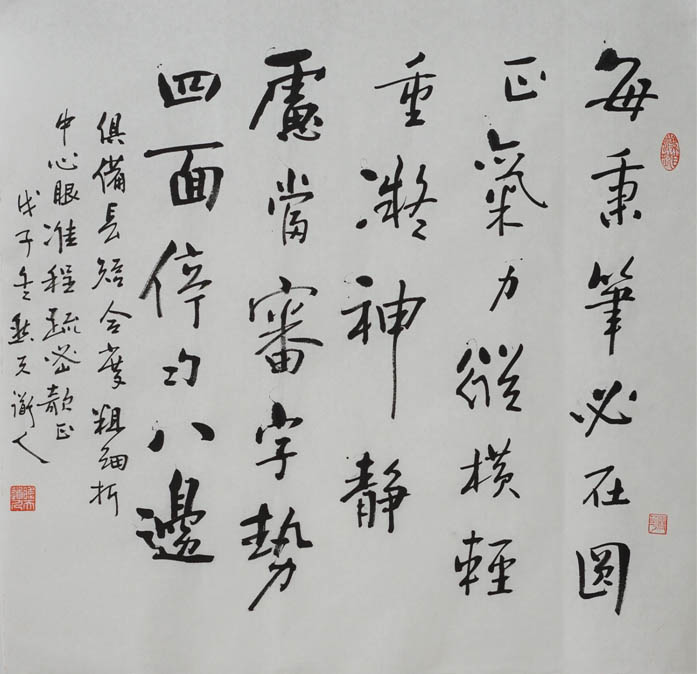 每秉筆必在圓
正氣力縱橫輕
重凝神靜
慮當審字勢
四面停均八邊
俱備長短合度粗細折
中心眼准程疏密欹正
戊子冬